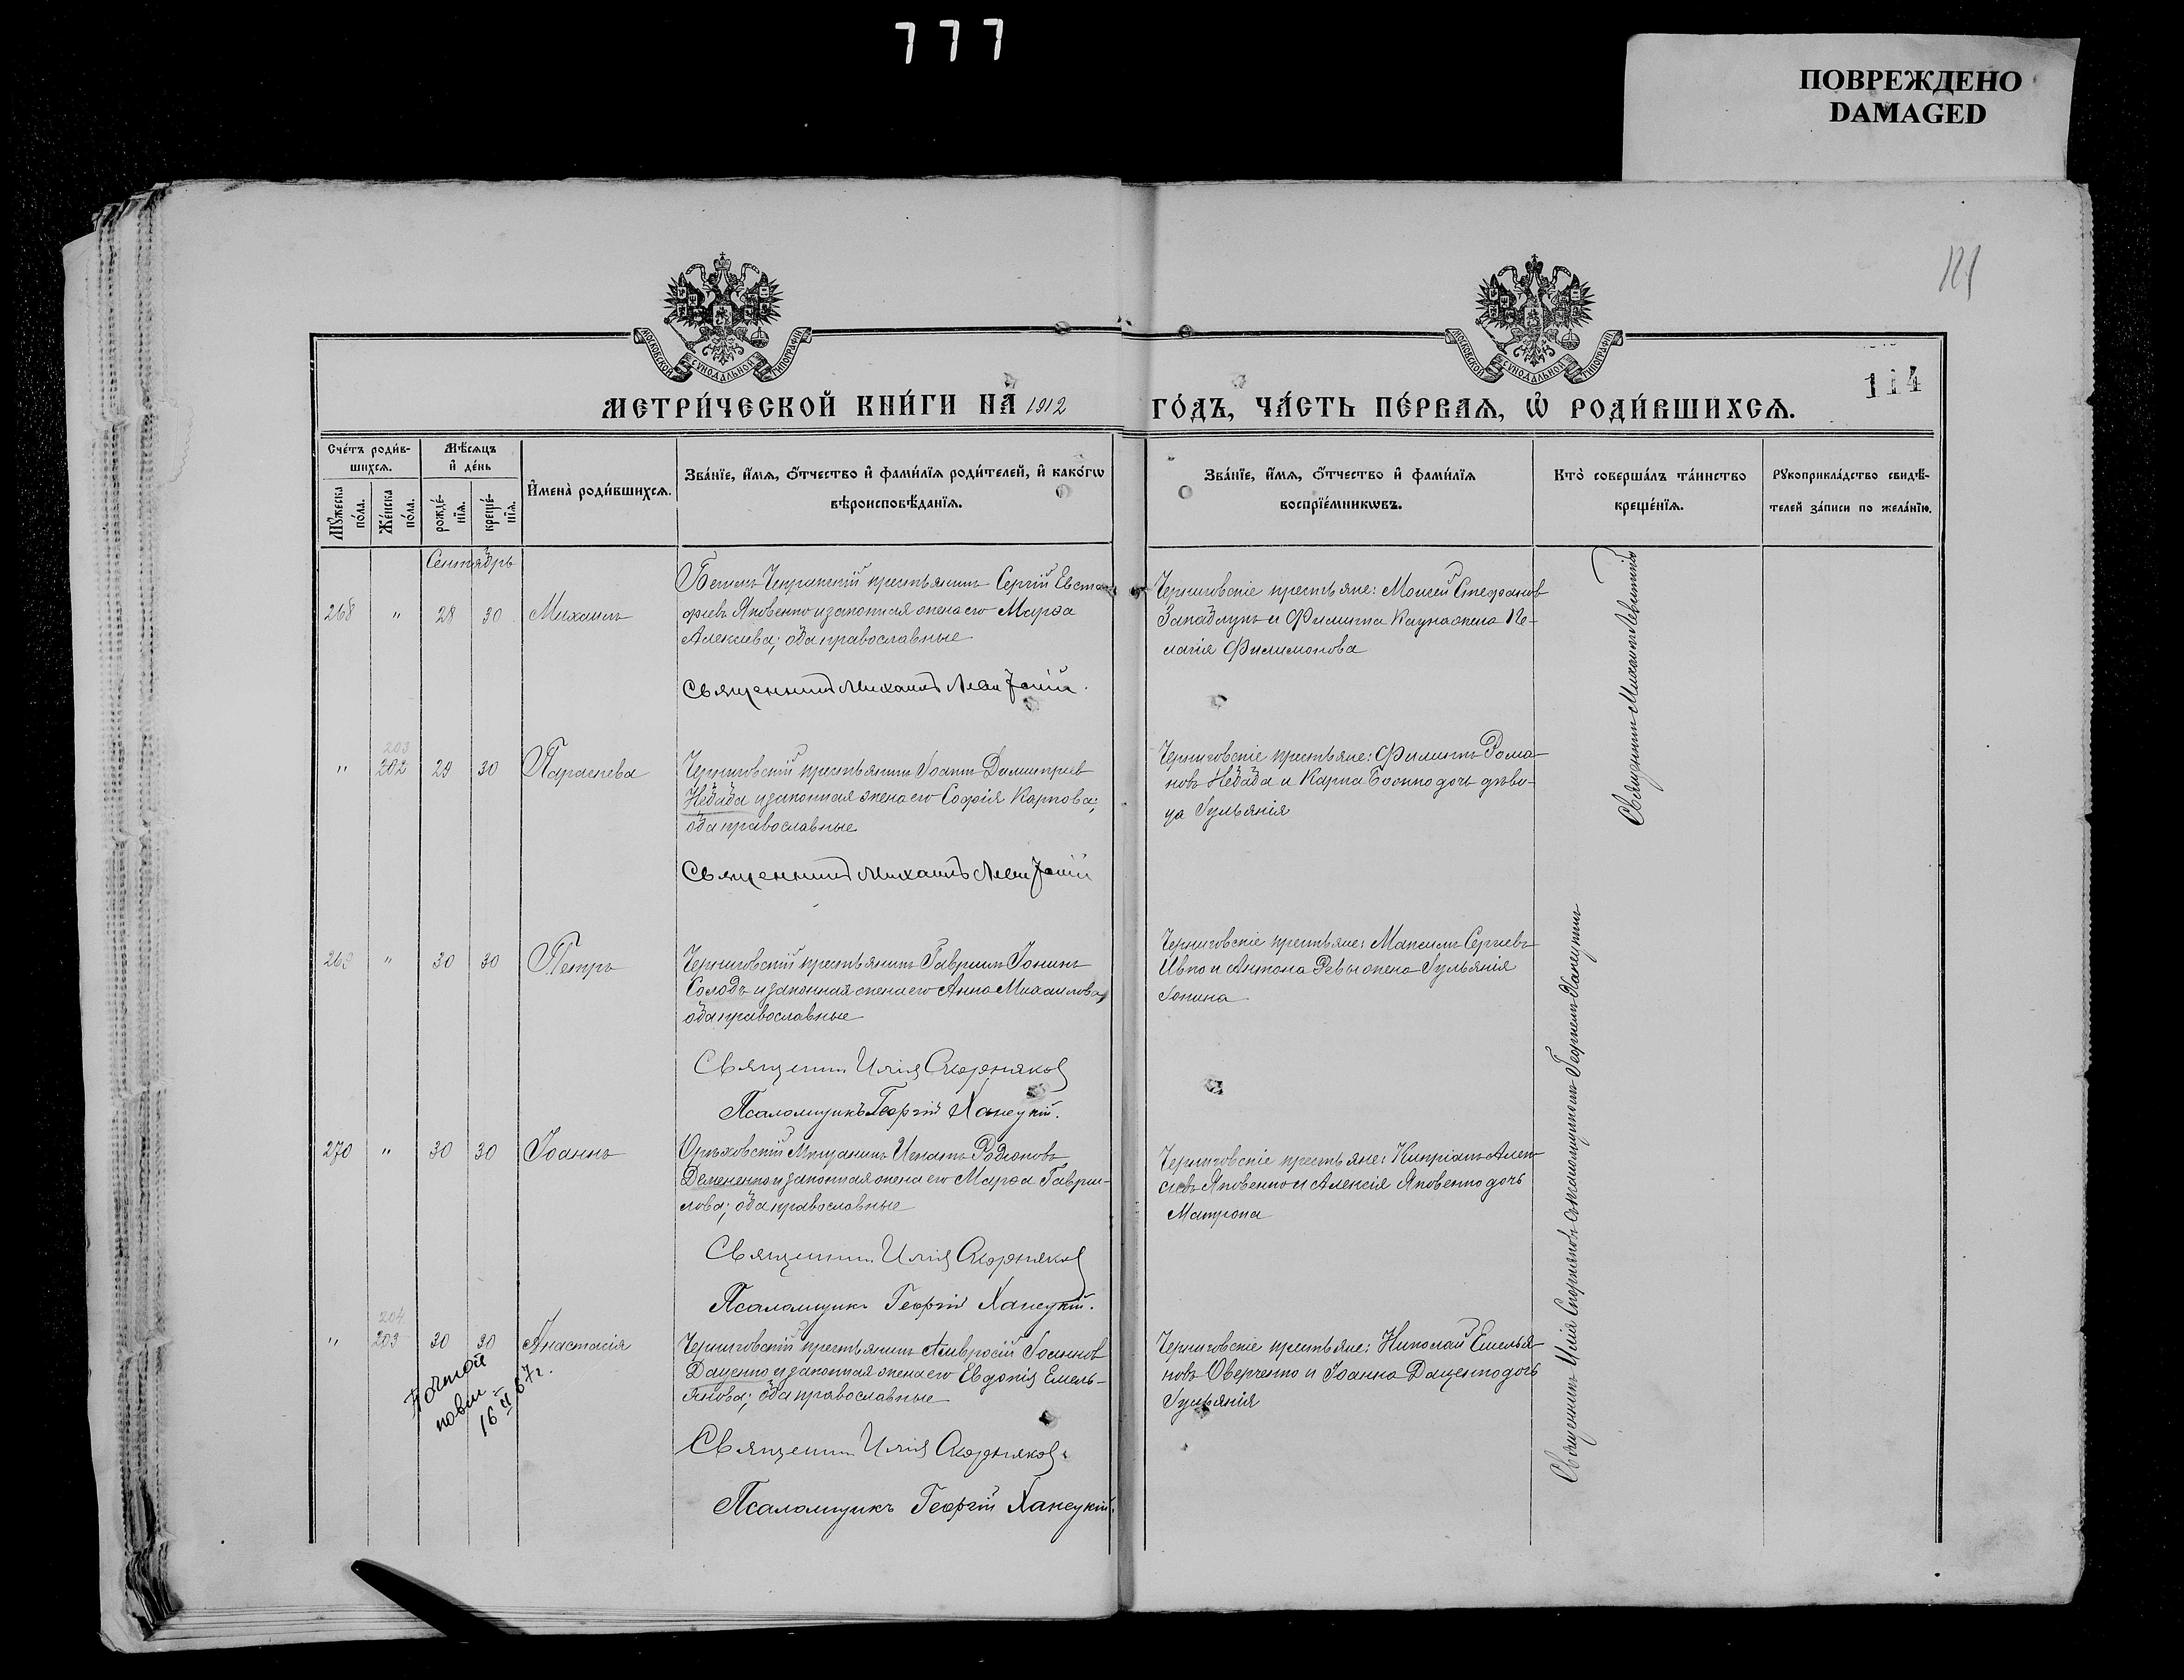 777
ПОВРЕЖДЕНО
DAMAGED
121
114
МОСКОВСКОЙ СѴНОДАЛЬНОЙ ТИПОГРАФІИ
МОСКОВСКОЙ СѴНОДАЛЬНОЙ ТИПОГРАФІИ
МЕТРИ́ЧЕСКОЙ КНИ́ГИ НА 1912 ГО́ДЪ, ЧА́СТЬ ПЕ́РВАѦ, Ѡ РОДИ́ВШИХСѦ.
Сче́тъ роди́в-
шихсѧ.
Мꙋ́жеска по́ла.
Же́нска по́ла.
Мѣ́сѧцъ
и҆ де́нь
рожде́-
нїѧ.
креще́-
нїѧ.
И҆мена̀ роди́вшихсѧ.
Зва́нїе, и҆́мѧ, ѻ҆́тчество и҆ фами́лїѧ роди́телей, и҆ како́гѡ
вѣроисповѣ́данїѧ.
Зва́нїе, и҆́мѧ, ѻ҆́тчество и҆ фами́лїѧ
воспрїе́мникѡвъ.
Кто̀ соверша́лъ та́инство
креще́нїѧ.
Рꙋкоприкла́дство свидѣ́-
телей за́писи по жела́нїю.
Сентябрь
268 " 28 30 Михаилъ
крестьянинъ Сергій Евста-
фіевъ Яковенко и законная жена его Марѳа
Алексіева; оба православные
Священникъ Михаилъ Левитскій.
Черниговскіе крестьяне: Моисей Стефановъ
Западлукъ и Филиппа Кауна жена Пе-
лагія Филимонова
Священникъ Михаилъ Левитскій
203
" 202 29 30 Параскева
Черниговскій крестьянинъ Іоаннъ Димитріевъ
Небаба и законная жена его Софія Карпова;
оба православные
Священникъ Михаилъ Левитскій
Черниговскіе крестьяне: Филиппъ Рома-
новъ Небаба и Карпа Бойко дочь дѣви-
ца Іуліанія
269 " 30 30 Петръ
Черниговскій крестьянинъ Гавриилъ Іонинъ
Солодъ и законная жена его Анна Михаилова;
оба православные
Священникъ Илія Скорняковъ
Псаломщикъ Георгій Ханецкій.
Черниговскіе крестьяне: Максимъ Сергіевъ
Ивко и Антона Ревы жена Іуліанія
Іонина
270 " 30 30 Іоаннъ
Орѣховскій мѣщанинъ Игнатъ Родіоновъ
Деменко и законная жена его Марѳа Гаврии-
лова; оба православные
Священникъ Илія Скорняковъ
Псаломщикъ Георгій Ханецкій.
Черниговскіе крестьяне: Кипріанъ Алек-
сіевъ Яковенко и Алексія Яковенко дочь
Матрона
204
" 203 30 30 Анастасія
Черниговскій крестьянинъ Амвросій Іоанновъ
Даценко и законная жена его Евдокія Емель-
янова; оба православные
Священникъ Илія Скорняковъ
Псаломщикъ Георгій Ханецкій.
Черниговскіе крестьяне: Николай Емелья-
новъ Оверченко и Іоанна Даценко дочь
Іуліанія
Священникъ Илія Скорняковъ съ псаломщикомъ Георгіемъ Ханецкимъ